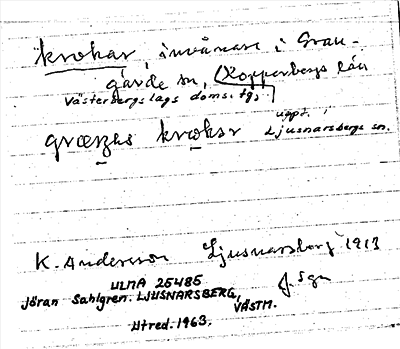 krokar, invånare i Gran-
gärde sn, (Kopparbergs län
Västerbergslags doms. tg.)
uppt. i
Ljusnarsbergs sn.
græŋɐs krokar
K. Andersson Ljusnarsberg 1913
J. Sgn
ULMA 25485
Jöran Sahlgren. LJUSNARSBERG,
VÄSTM.
Utred. 1963.